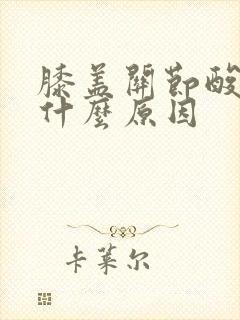 膝盖關節酸
什麼原因
卡莱尔